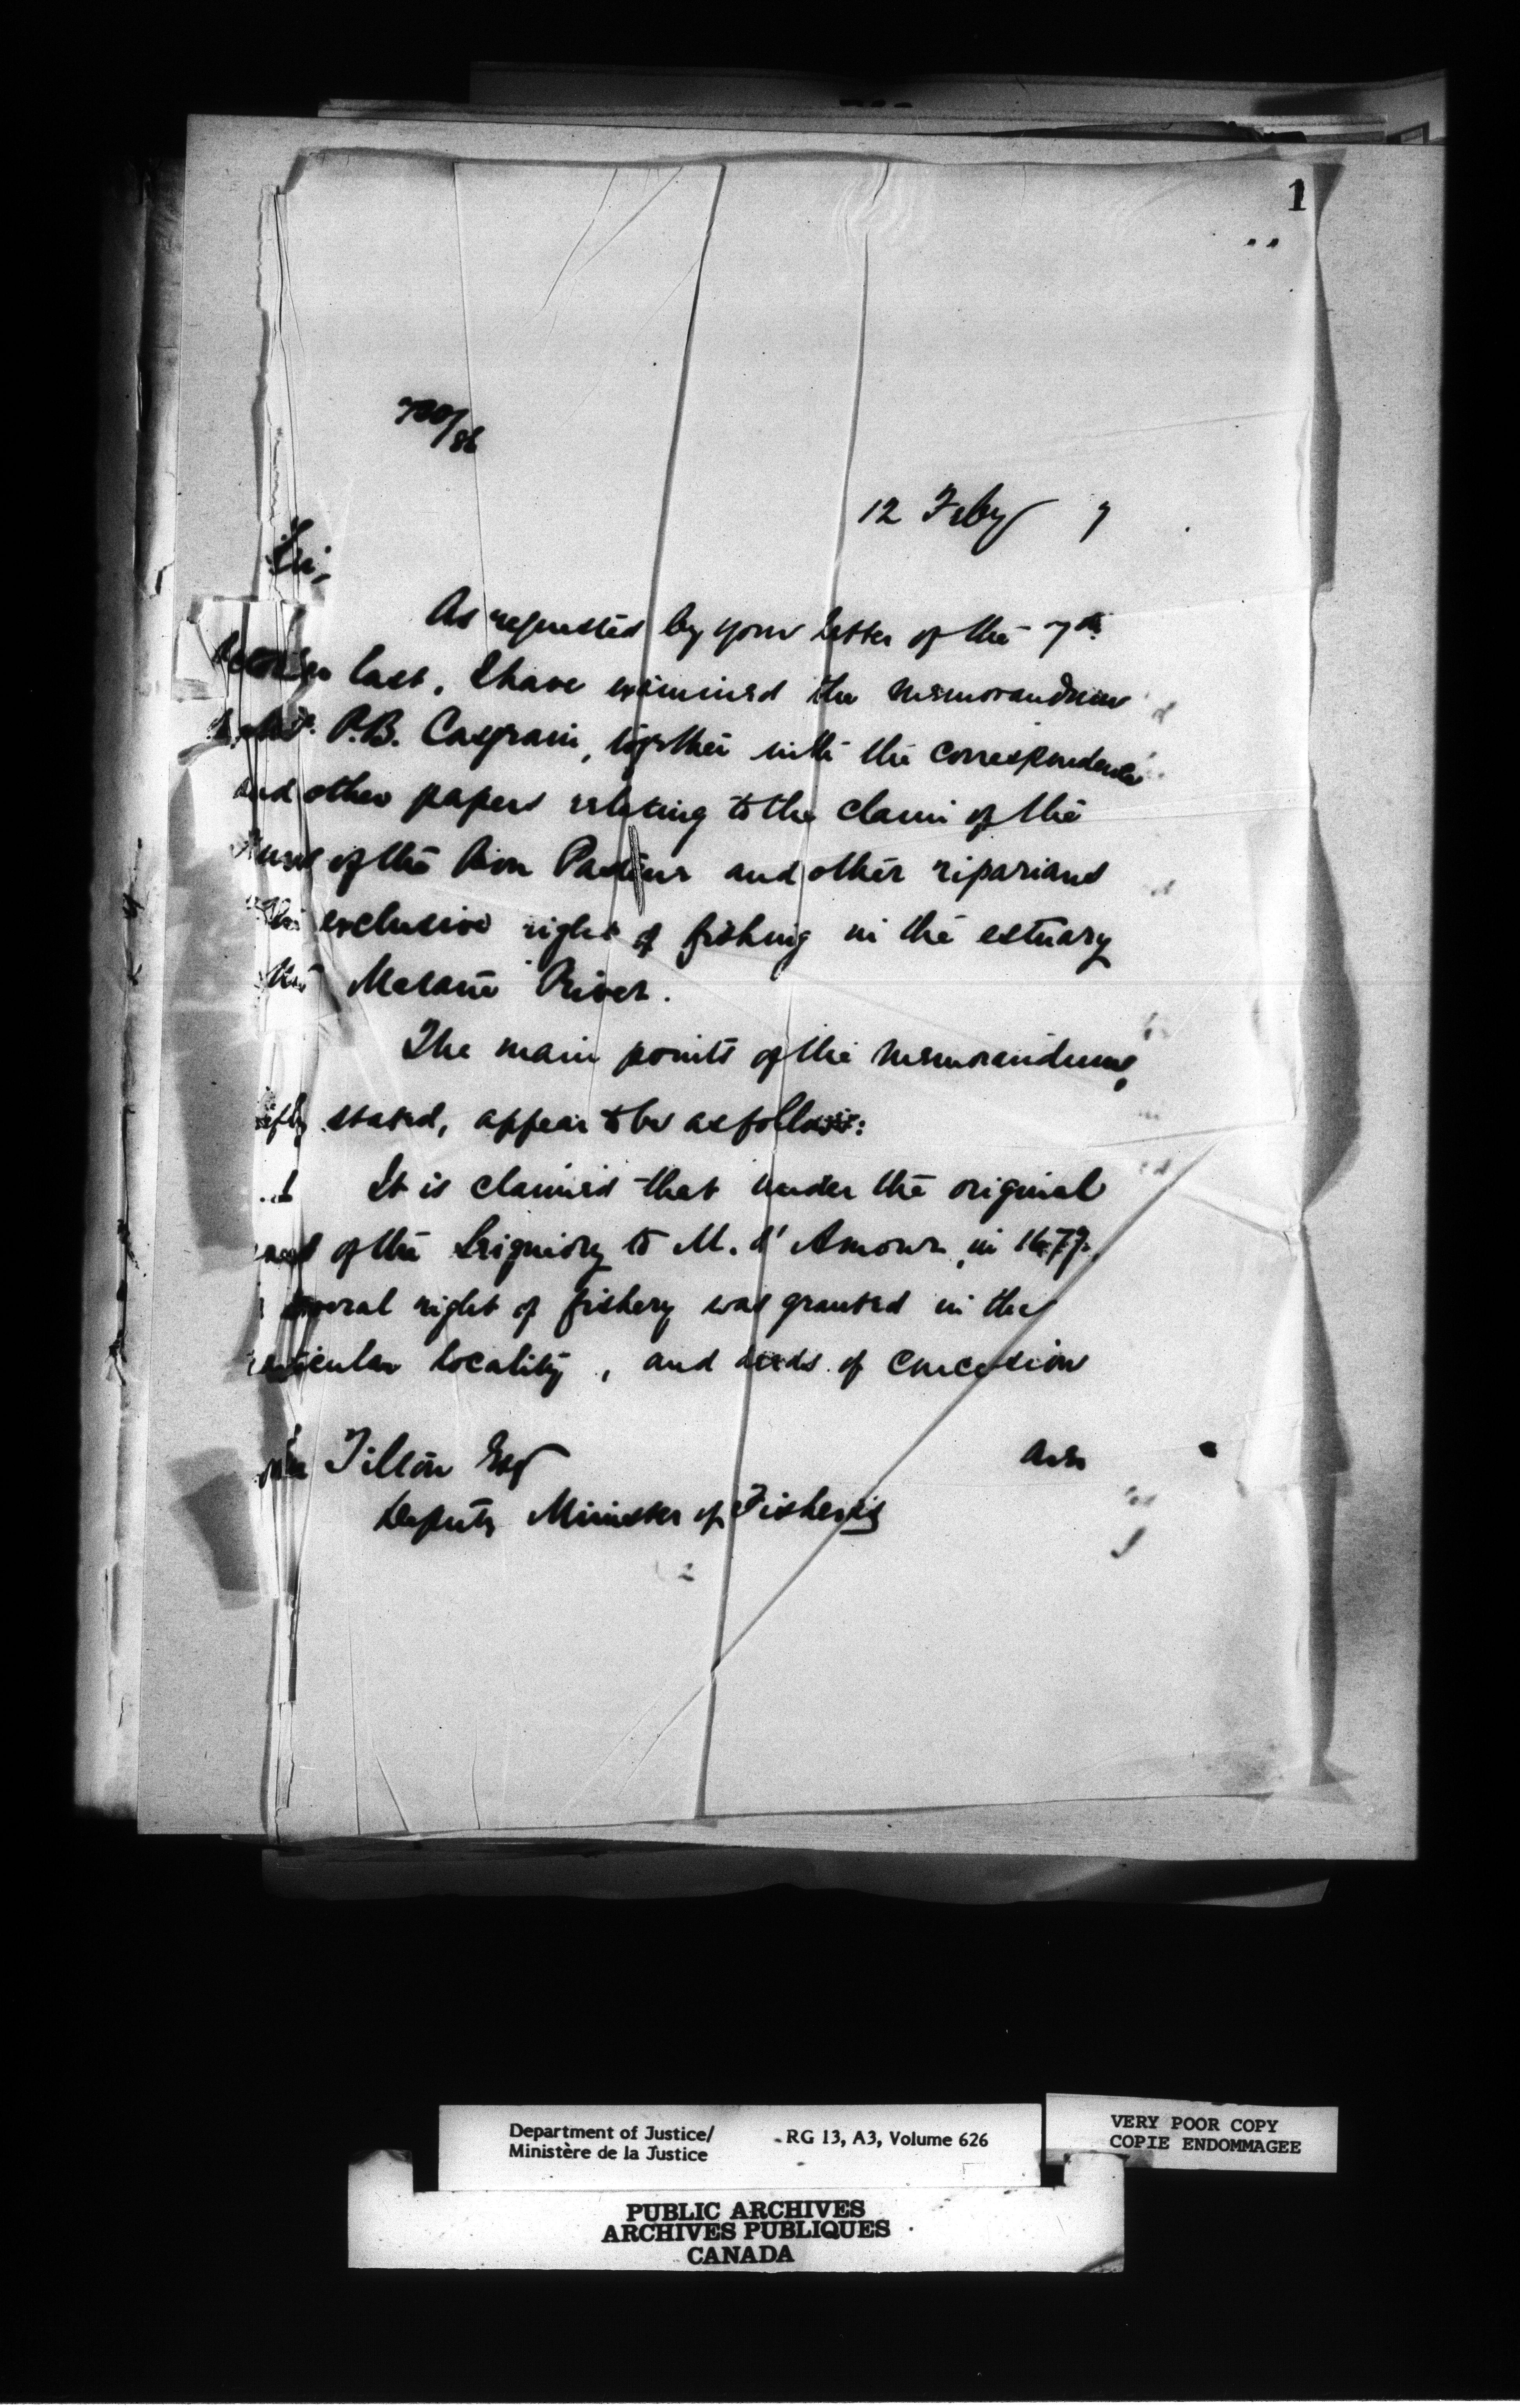 1
700/86
12 Feby 7
Sir,
As requested by your letter of the 7th
last, I have examined the memorandum
P.B. Casgrain, together with the correspondence
and other papers relating to the claim of the
of the Bon Pasteur and other riparians
exclusive right of fishing in the estuary
the Matane River.
The main points of the memorandum,
stated, appear to be as follows:
It is claimed that under the original
of the Seigniory to M. d'Amour, in 1677,
several right of fishery was granted in the
locality, and deeds of concession
are
Tilton Esq
Deputy Minister of Fisheries
Department of Justice/
Ministère de la Justice
RG 13, A3, Volume 626
VERY POOR COPY
COPIE ENDOMMAGEE
PUBLIC ARCHIVES
ARCHIVES PUBLIQUES
CANADA